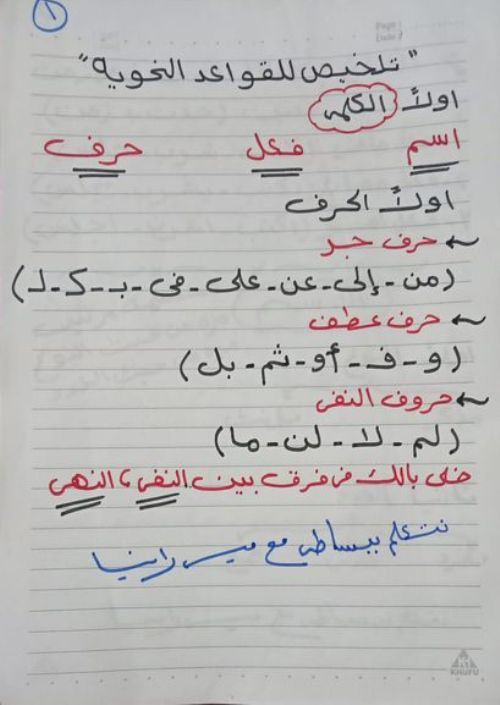 ١
"تلخيص للقواعد النحويه"
اولاً الكلمه
اسم فعل حرف
اولاً الحرف
← حرف جر
(من - إلى - عن - على - فى - بـ - كـ - لـ)
← حرف عطف
(و - فـ - أو - ثم - بل)
← حروف النفى
(لم - لا - لن - ما)
خلى بالك فى فرق بين النفى، النهى
نتعلم ببساطه مع ميس رانيا
KHUFU